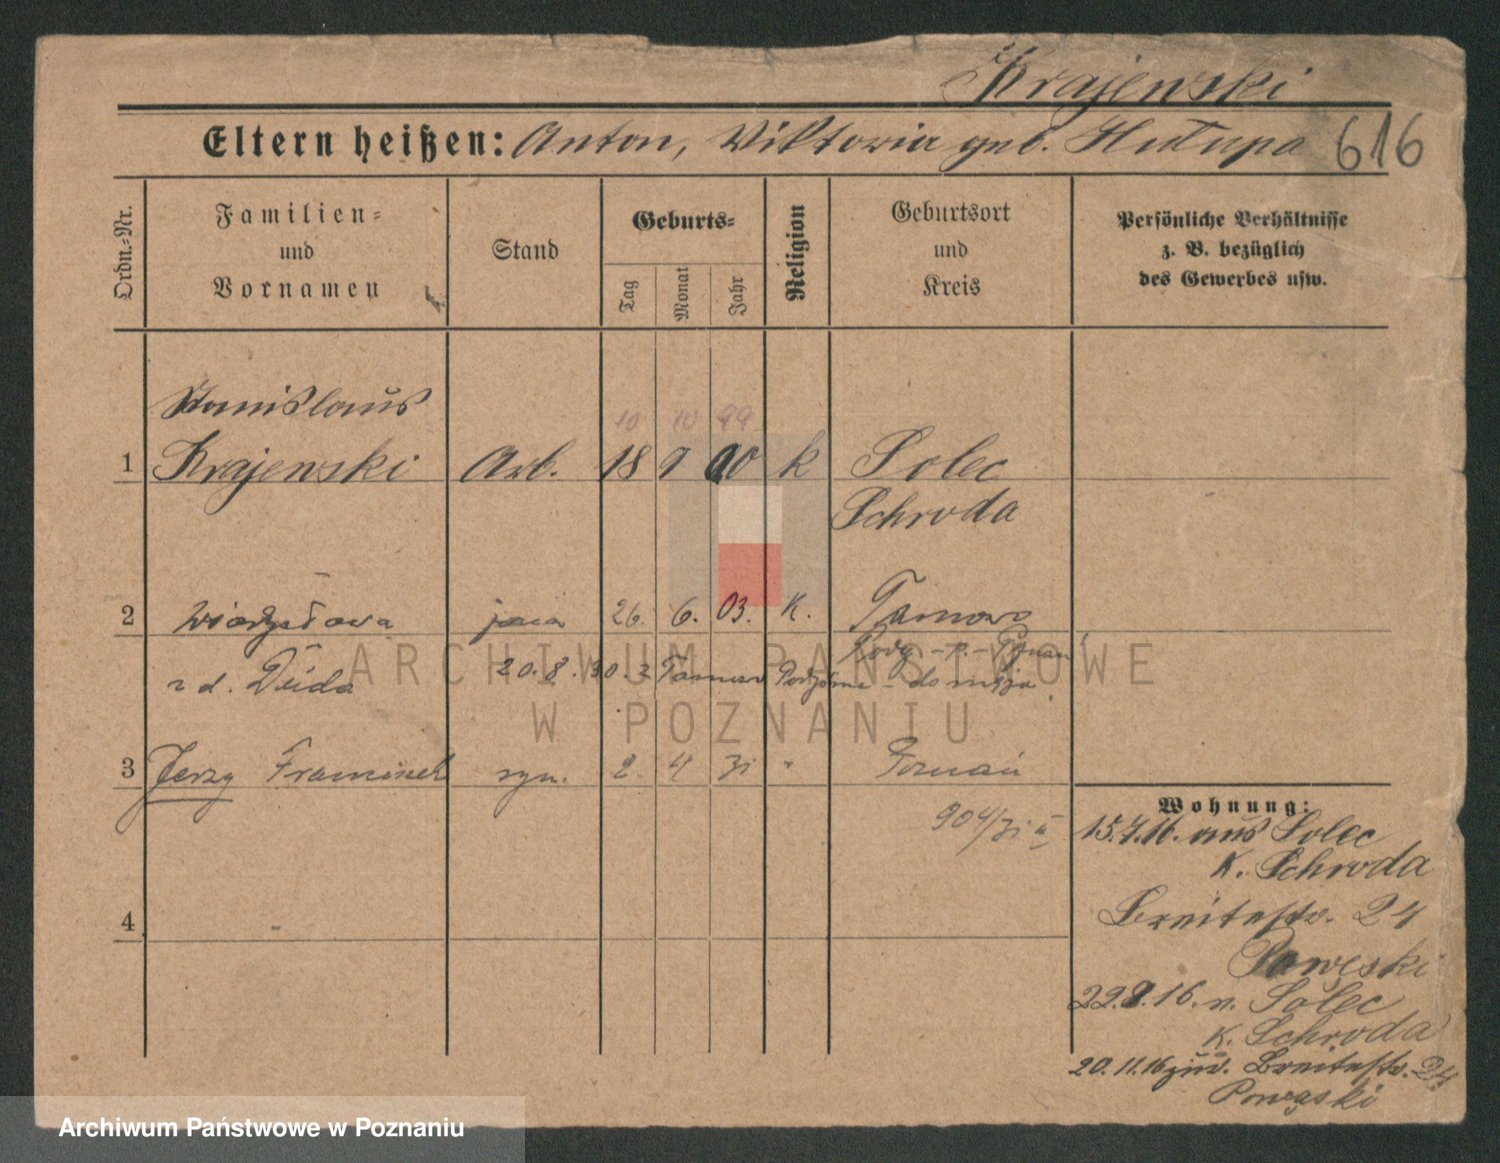 Krajewski
Eltern heißen: Anton, Viktoria geb. 616
Ordn.=Nr.
Familien=
und
Vornamen
Stand
Geburts=
Tag
Monat
Jahr
Religion
Geburtsort
und
Kreis
Persönliche Verhältnisse
z. B. bezüglich
des Gewerbes usw.
Stanislaus
10 10 99
1 Krajewski Arb. 18 9 00 k Solec
Schroda
2 Władysława żona 26. 6. 03. K. Tarnowo
Podg
z d. 20.8.30. z Tarnowo Podgórne
3 Jerzy Franciszek syn. 2. 4 31 " Poznań
904/31
4
Wohnung:
15.7.16. aus Solec
K. Schroda
Breitestr. 24
22.8.16. n. Solec
K. Schroda
20.11.16 zur. Breitestr. 24
ARCHIWUM PAŃSTWOWE
W POZNANIU
Archiwum Państwowe w Poznaniu